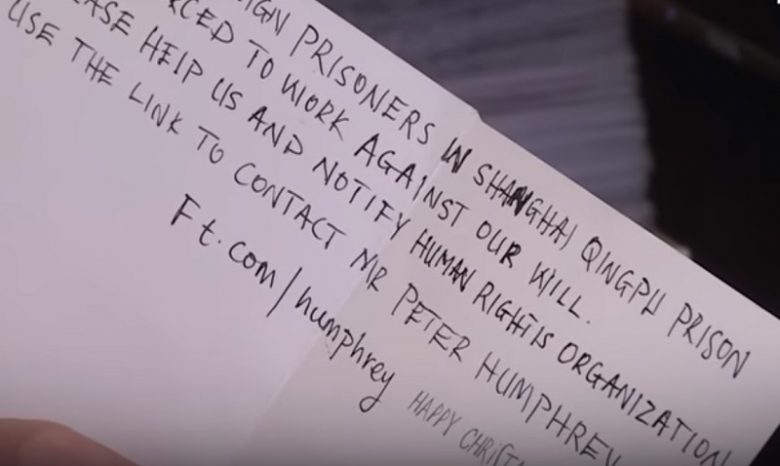 IGN PRISONERS IN SHANGHAI QINGPU PRISON
RCED TO WORK AGAINST OUR WILL.
EASE HELP US AND NOTIFY HUMAN RIGHTS ORGANIZATION
USE THE LINK TO CONTACT MR PETER HUMPHREY
Ft.com/humphrey
HAPPY CHRIST